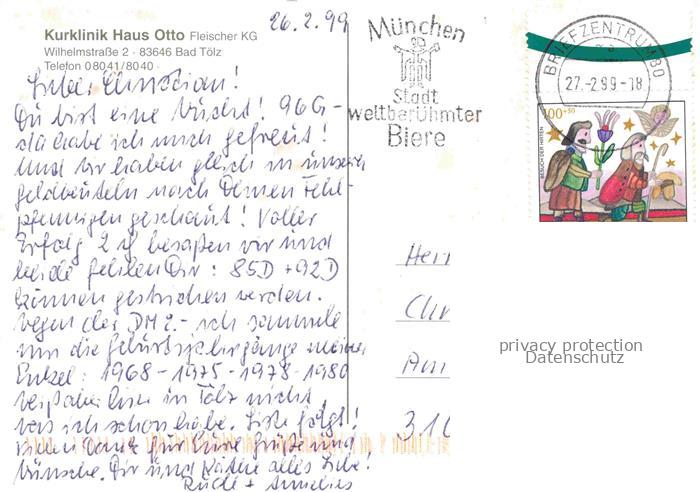 Kurklinik Haus Otto Fleischer KG
Wilhelmstraße 2 · 83646 Bad Tölz
Telefon 08041/8040
26.2.99
Lieber Christian!
Du bist eine Wucht! 96G-
da habe ich mich gefreut!
Und wir haben gleich in unseren
Geldbeuteln nach Deinen Fehl-
pfennigen geschaut! Voller
Erfolg 2 besaßen wir und
beide fehlen Dir: 85D + 92D
können gestrichen werden.
Wegen der DM 2.- ich sammle
nur die Geburtsjahrgänge meiner
Enkel: 1968 - 1975 - 1978 - 1980
liste in Tölz nicht,
was ich schon habe. Liste folgt!
Vielen Dank für Eure
wünsche. Dir und Käthe alles Liebe!
Rudi + Annelies
München
Stadt
weltberühmter
Biere
BRIEFZENTRUM 80
27.-2.99-18
100+50
BESUCH DER HIRTEN
Herr
Chr
Am
31
privacy protection
Datenschutz